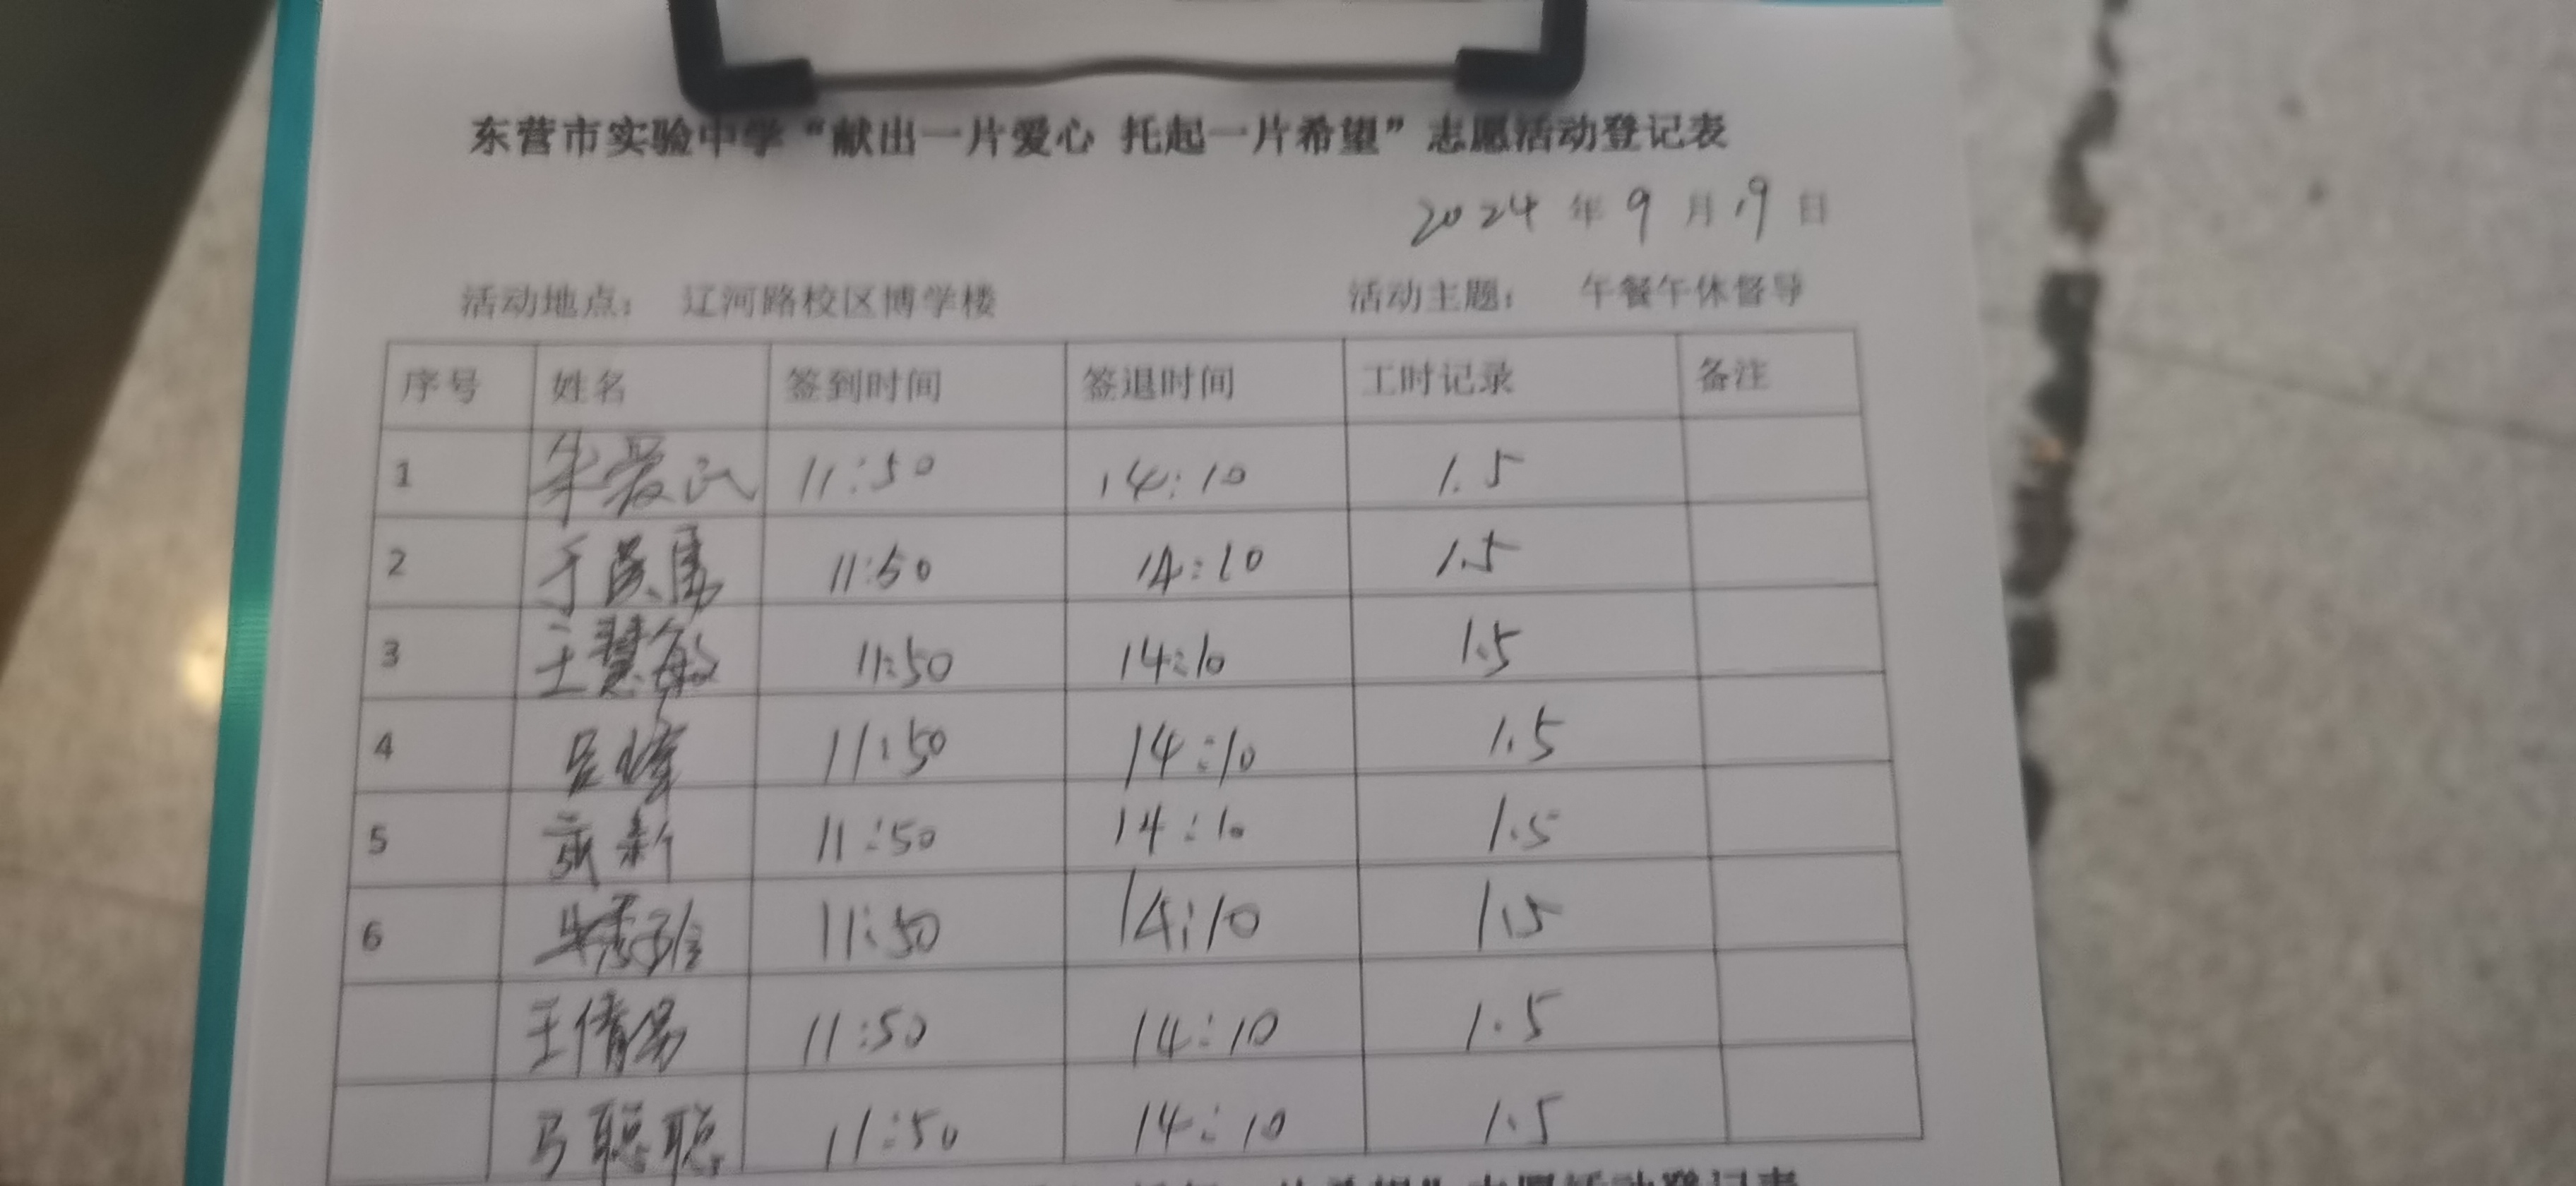 东营市实验中学“献出一片爱心 托起一片希望”志愿活动登记表
2024 年 9 月 19 日
活动地点： 辽河路校区博学楼 活动主题： 午餐午休督导
序号 姓名 签到时间 签退时间 工时记录 备注
1 朱爱民 11:50 14:10 1.5
2 于 11:50 14:10 1.5
3 王慧敏 11:50 14:10 1.5
4 吕 11:50 14:10 1.5
5 新 11:50 14:10 1.5
6 11:50 14:10 1.5
王倩 11:50 14:10 1.5
马聪聪 11:50 14:10 1.5
志愿活动登记表